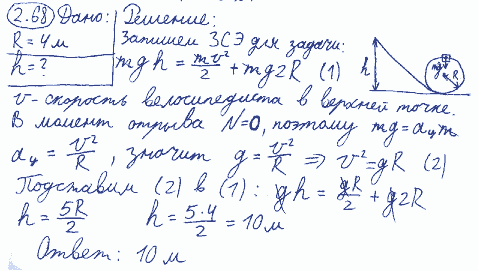 2.68 Дано: Решение:
R = 4 м Запишем ЗСЭ для задачи:
h = ? mgh = mv²/2 + mg2R (1)
h mg R
v - скорость велосипедиста в верхней точке.
В момент отрыва N=0, поэтому mg = aцm
aц = v²/R, значит g = v²/R ⇒ v² = gR (2)
Подставим (2) в (1): gh = gR/2 + g2R
h = 5R/2 h = 5·4/2 = 10 м
Ответ: 10 м